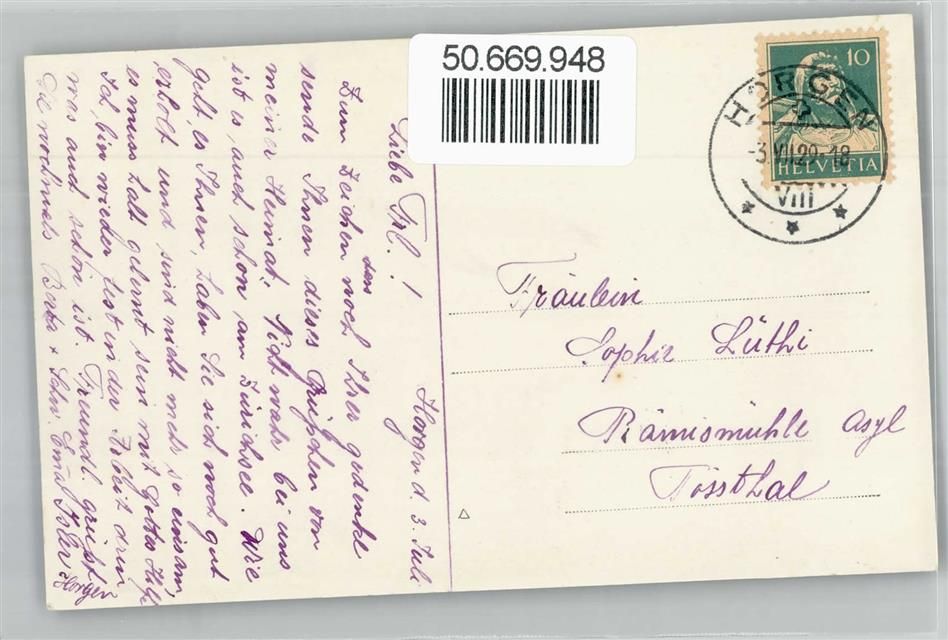 50.669.948
10
HELVETIA
HORGEN
-3.VII.29-18
VIII
Horgen d. 3. Juli
Liebe Frl. !
Zum Zeichen das noch Ihrer gedenke
sende Ihnen dieses Grüsschen von
meiner Heimat. Nicht wahr bei uns
ist es auch schön am Zürichsee. Wie
geht es Ihnen, haben Sie sich noch gut
erholt und sind nicht mehr so einsam,
es muss halt gelernt sein mit Gottes Hilfe
Ich bin wieder fest in der Arbeit drin
was auch schön ist. Freundl. grüsst
Sie nochmals Berta + Schw. Emal Isler Horgen
Fräulein
Sophie Lüthi
Rämismühle Asyl
Tössthal